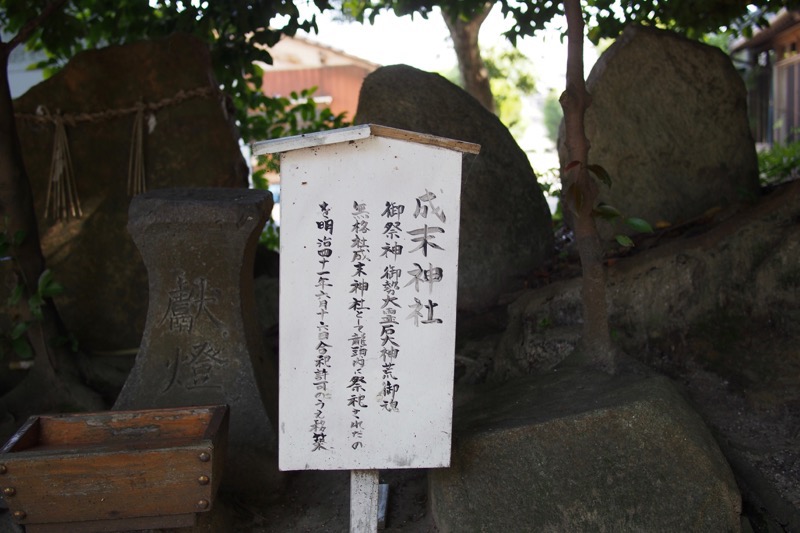 成末神社
御祭神 御勢大霊石大神荒御魂
無格社成末神社として龍頭内に祭祀されたの
を明治四十一年六月十六日合祀許可のうえ移築
献燈